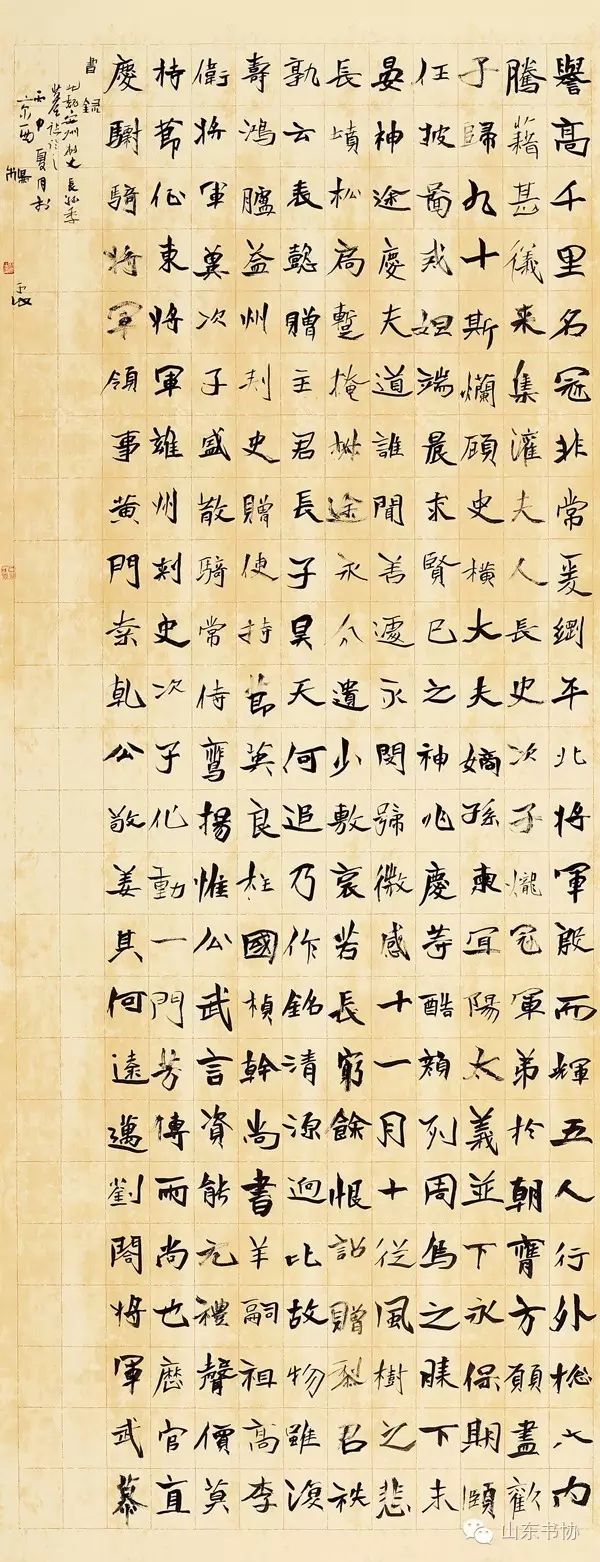 譽高千里名冠非常爰綱平北將軍殷而輝五人行外總六内
騰籍甚儀來集濯夫人長史次子爖冠軍弟於朝齊方願盡歡
子歸九十斯爛顧史橫大夫嫡孫東宜陽太義並下永保期頤
任披圖或妲端晨求賢已之神兆慶等酷頰列周馬之膝下未
晏神途慶夫道誰聞善遽永閔號微感十一月十從風樹之悲
長墳松扃蹔掩樹途永分遺少敷哀若長窮餘恨詔贈梨召袟
孰云表懿贈主君長子昊天何追乃作銘清源迥比故物雖復
壽鴻臚益州刺史贈使持節英良柱國楨幹尚書羊嗣祖高李
衛將軍冀次子盛散騎常侍鸞揚惟公武言資能元禮聲價莫
持節征東將軍雄州刺史次子化動一門芳傳而尚也歷官直
慶駙騎將軍領事黄門奈乾公敬姜其何遠邁劉閣將軍武慕
書錄
安州刺史
丙申夏月於
京西
山东书协